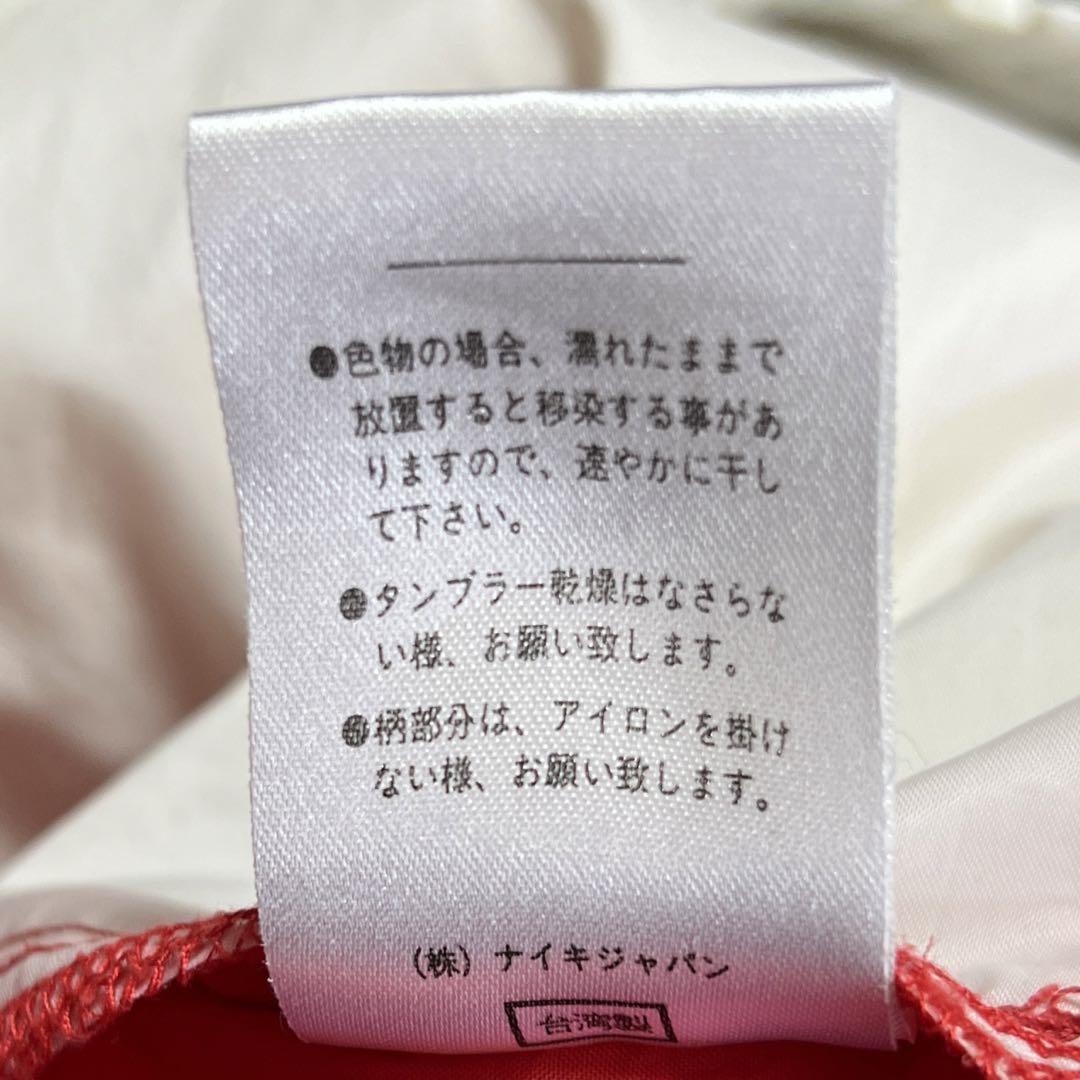 ●色物の場合、濡れたままで
放置すると移染する事があ
りますので、速やかに干し
て下さい。
●タンブラー乾燥はなさらな
い様、お願い致します。
●柄部分は、アイロンを掛け
ない様、お願い致します。
(株)ナイキジャパン
台湾製